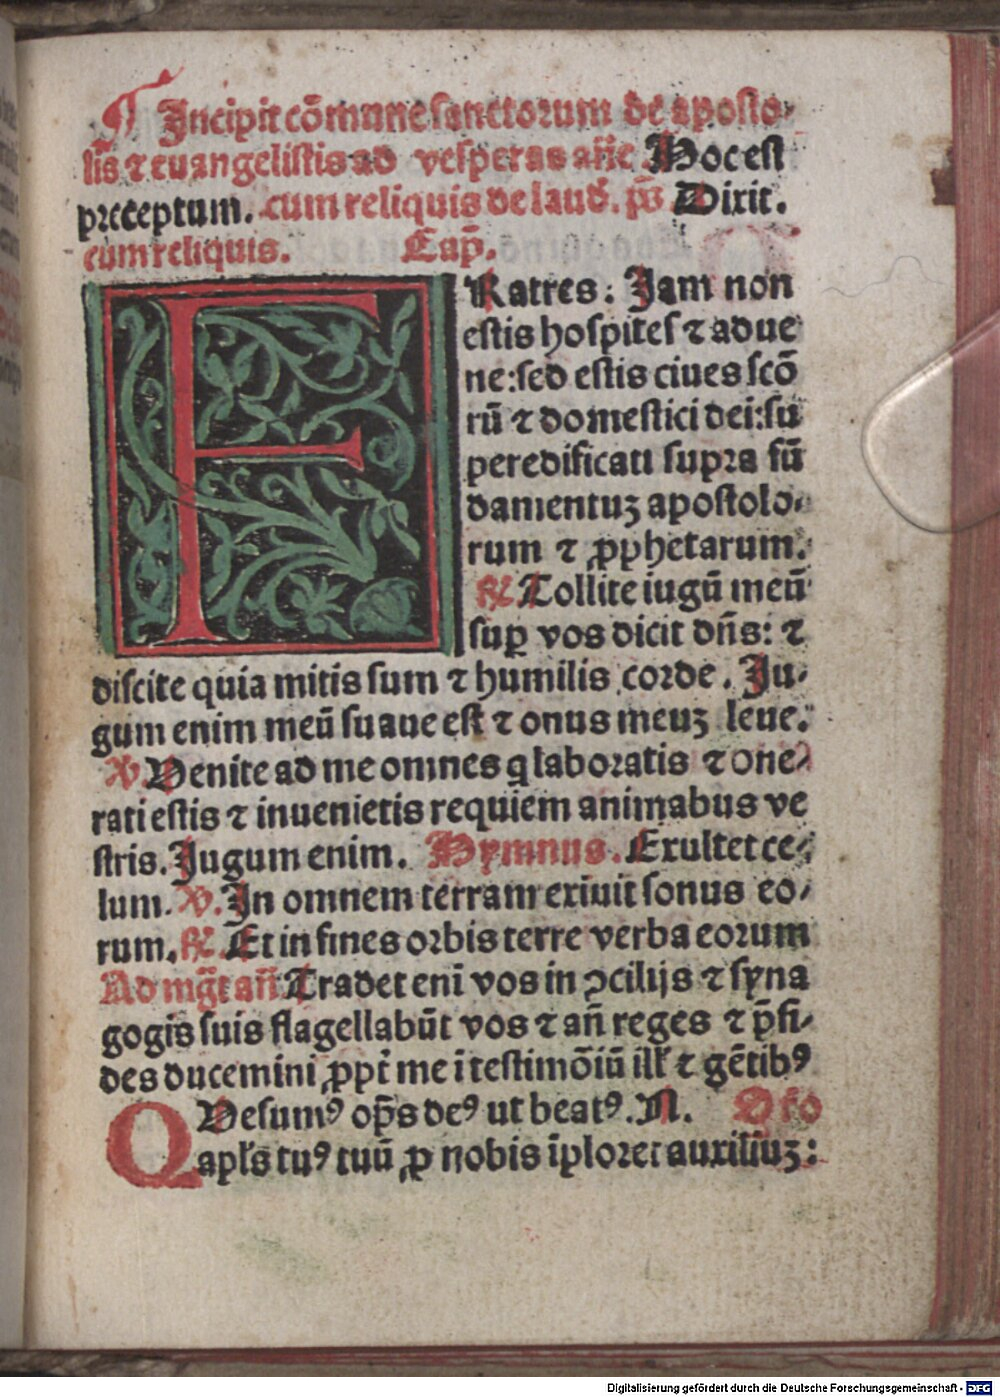 ¶ Incipit cōmune sanctorum de aposto-
lis̄ ⁊ euangelistis ad vesperas añe Hoc est
preceptum. cum reliquis de laud̄. ps̄ Dixit.
cum reliquis. Cap̄.
FRatres: Jam non
estis hospites ⁊ adue
ne: sed estis ciues scō
rū ⁊ domestici dei: su
peredificati supra fū
damentuꝫ apostolo-
rum ⁊ ꝓphetarum.
℟ Tollite iugū meū
suꝑ vos dicit dn̄s: ⁊
discite quia mitis sum ⁊ humilis corde. Ju-
gum enim meū suaue est ⁊ onus meuꝫ leue.
℣. Venite ad me omnes q̇ laboratis ⁊ one-
rati estis ⁊ inuenietis requiem animabus ve
stris. Jugum enim. Hymnus. Exultet ce-
lum. ℣. In omnem terram exiuit sonus eo-
rum. ℟. Et in fines orbis terre verba eorum
Ad mḡt añ Tradet enī vos in ꝯcilijs ⁊ syna
gogis suis flagellabūt vos ⁊ añ reges ⁊ p̄si-
des ducemini ꝓpt̄ me ī testimōiū ill' ⁊ gētibꝰ
QVesumꝰ op̄s deꝰ ut beatꝰ. N. Oro
apl's tuꝰ tuū ꝓ nobis īploret auxiliuꝫ:
Digitalisierung gefördert durch die Deutsche Forschungsgemeinschaft - DFG